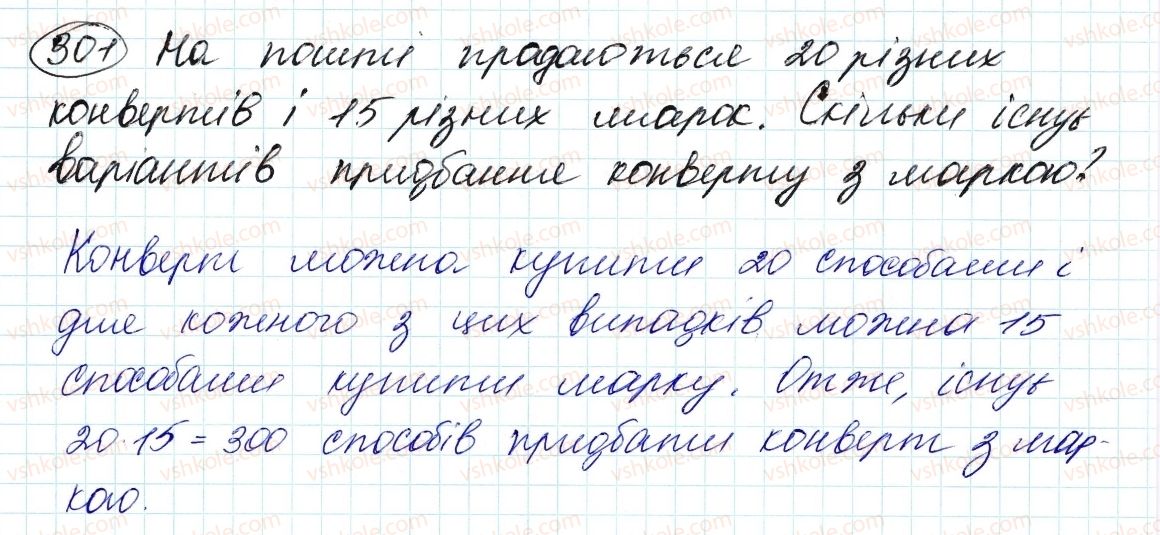 301 На пошті продаються 20 різних
конвертів і 15 різних марок. Скільки існує
варіантів придбання конверту з маркою?
Конверт можна купити 20 способами і
для кожного з цих випадків можна 15
способами купити марку. Отже, існує
20·15=300 способів придбати конверт з мар-
кою.